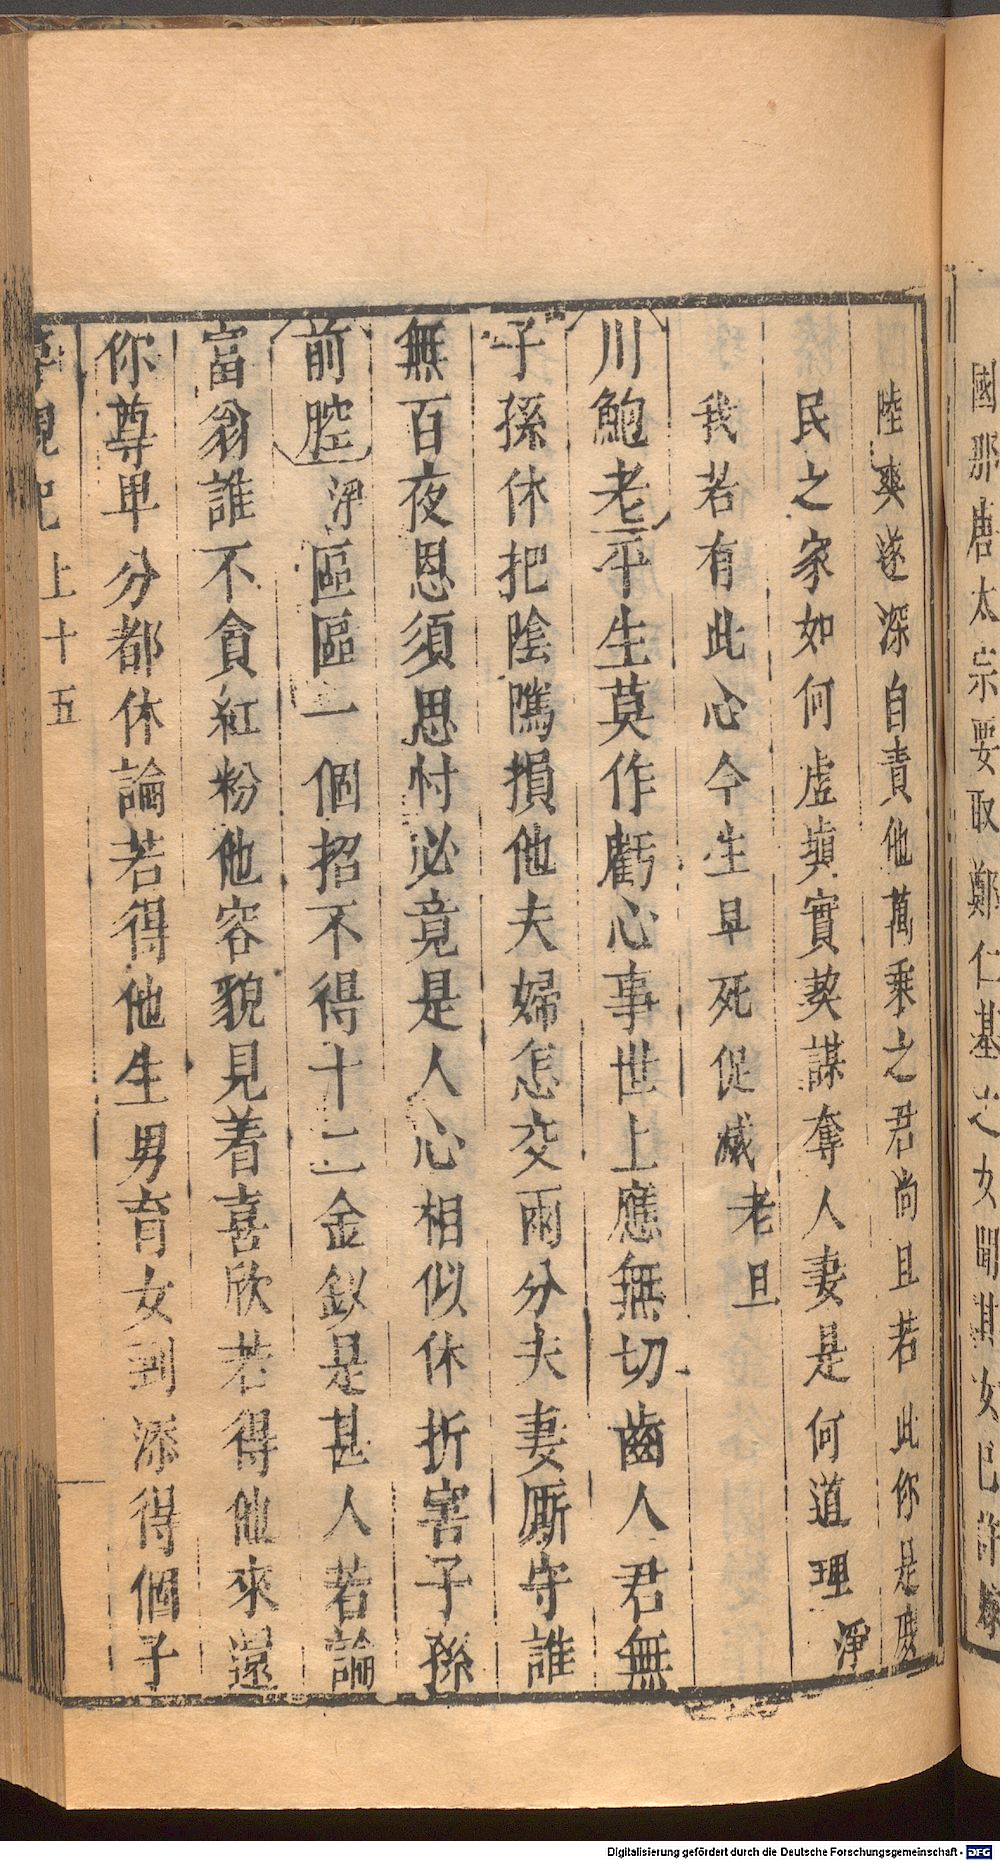 國那唐太宗要取鄭仁基之女聞其女已許嫁
陸爽遂深自責他萬乘之君尚且若此你是庶
民之家如何虛塡實契謀奪人妻是何道理淨
我若有此心今生早死促滅老旦
川鮑老平生莫作虧心事世上應無切齒人君無
子孫休把陰隲損他夫婦怎交兩分夫妻厮守誰
無百夜恩須思忖必竟是人心相似休折害子孫
前腔淨區區一個招不得十二金釵是甚人若論
富翁誰不貪紅粉他容貌見着喜欣若得他來還
你尊卑分都休論若得他生男育女到添得個子
上十五
Digitalisierung gefördert durch die Deutsche Forschungsgemeinschaft - DFG